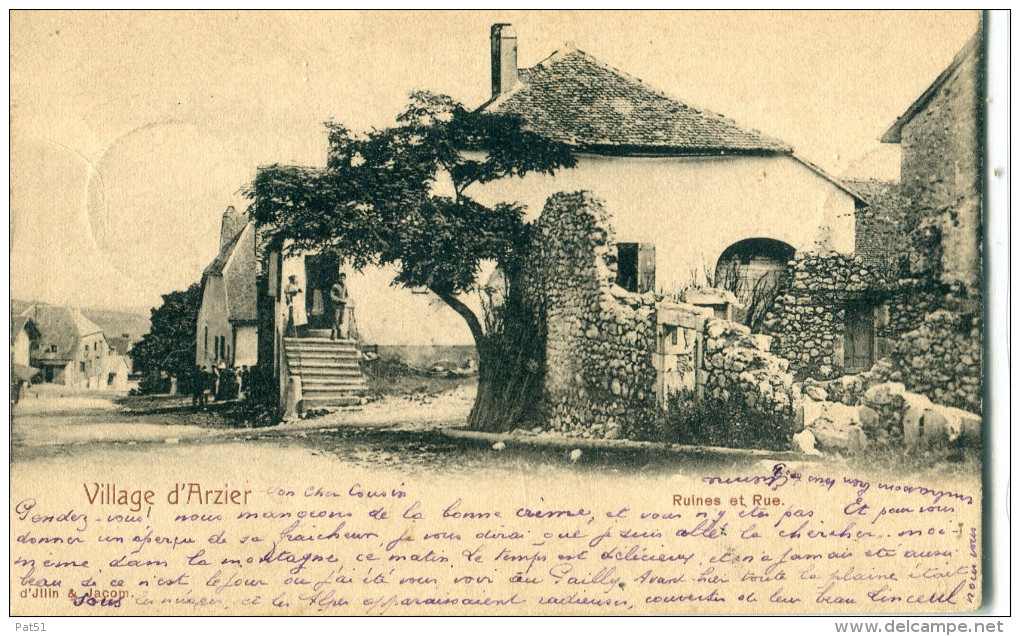 Village d'Arzier
Ruines et Rue.
Mon Cher Cousin
Pendez-vous! nous mangeons de la bonne crème, et vous n'y êtes pas Et pour vous
donner un aperçu de sa fraicheur, je vous dirai que je suis allé la chercher... moi
même dans la montagne ce matin. Le temps est délicieux, et n'a jamais été aussi
beau si ce n'est le jour où j'ai été vous voir au Pailly. Avant hier toute la plaine était
d'Jllin & Jacom.
Sous les nuages, et les Alpes apparaissaient radieuses, couvertes de leur beau linceul
nous vous
Pat51
www.delcampe.net